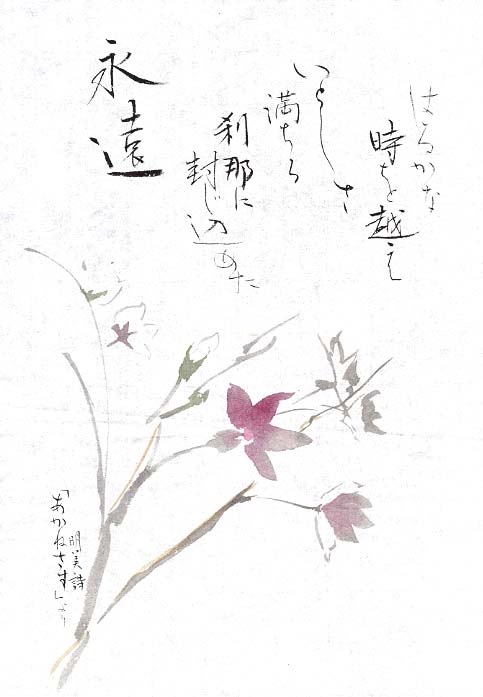 はるかな
時を越え
いとしさ
満ちる
刹那に
封じ込めた
永遠
明美詩
「あかねさす」より